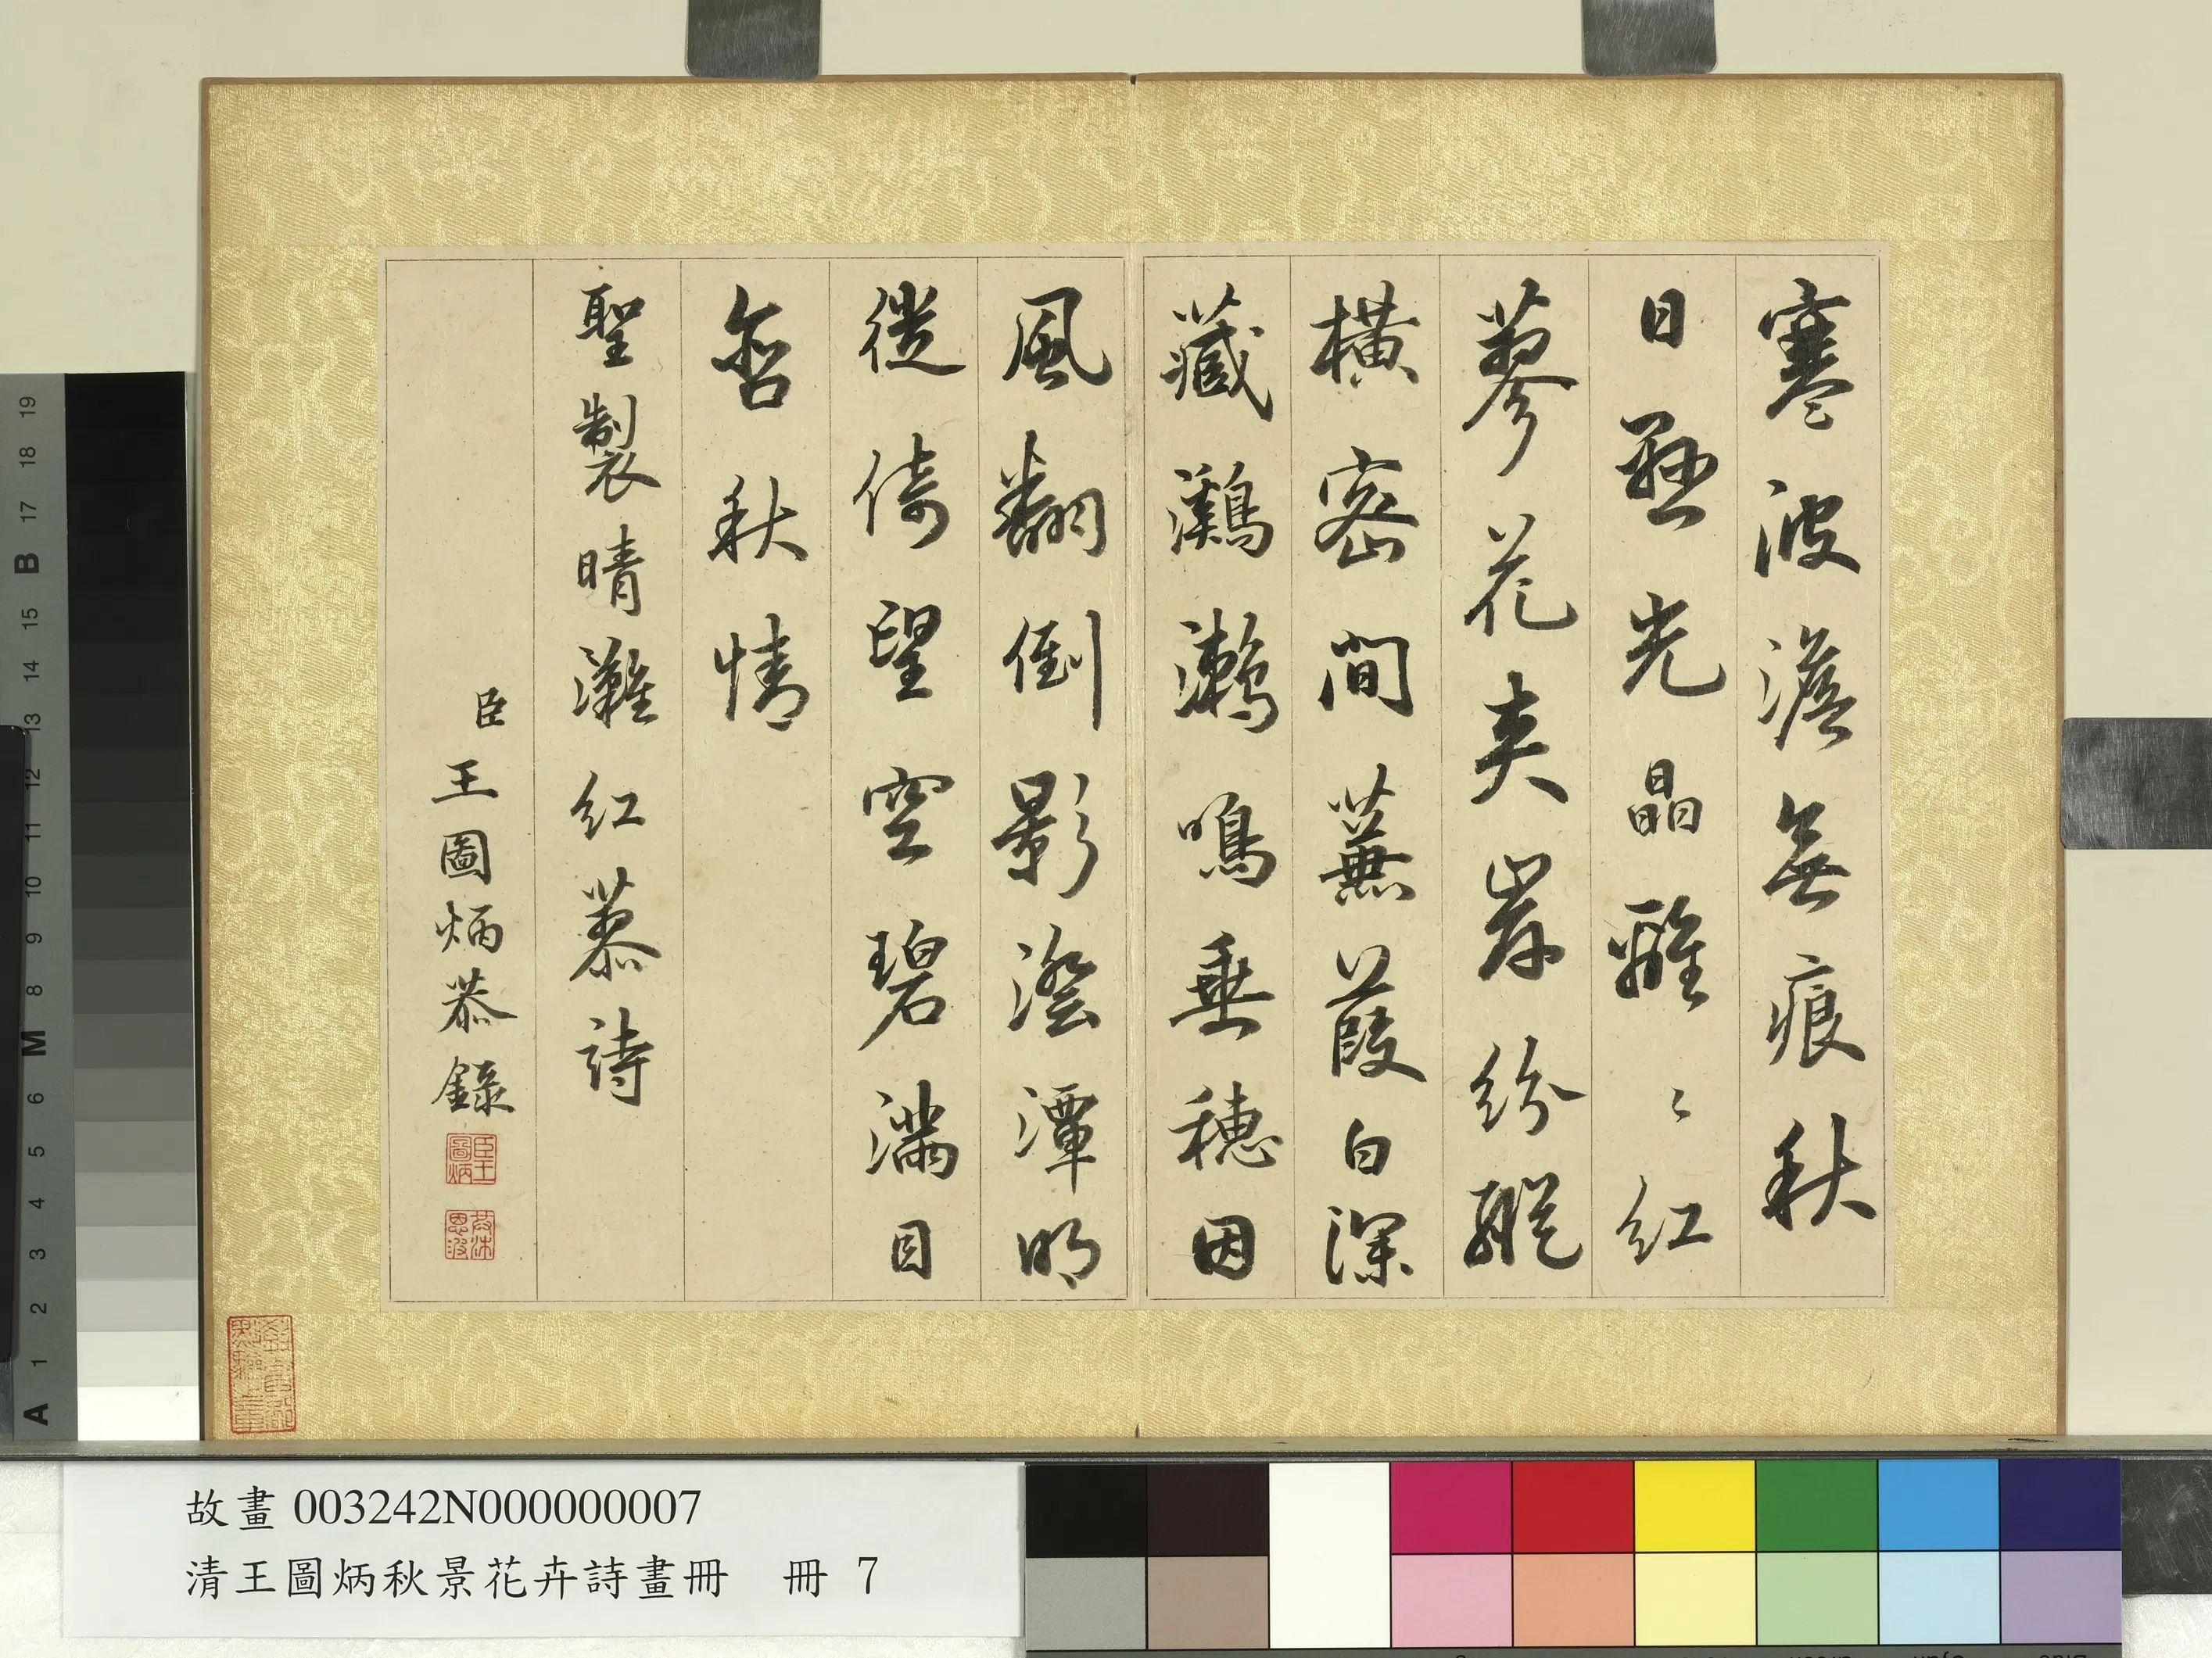 寒波澹無痕秋
日懸光晶離〻紅
蓼花夾岸紛縱
橫密間蕪葭白深
藏鸂鷘鳴垂穗因
風翻倒影澄潭明
徙倚望空碧滿目
含秋情
聖製晴灘紅慕詩
臣王圖炳恭錄
臣王圖炳
故畫 003242N000000007
清王圖炳秋景花卉詩畫冊 冊 7
19
18
17
B
16
15
14
13
12
11
10
9
8
M
6
5
4
3
2
1
A